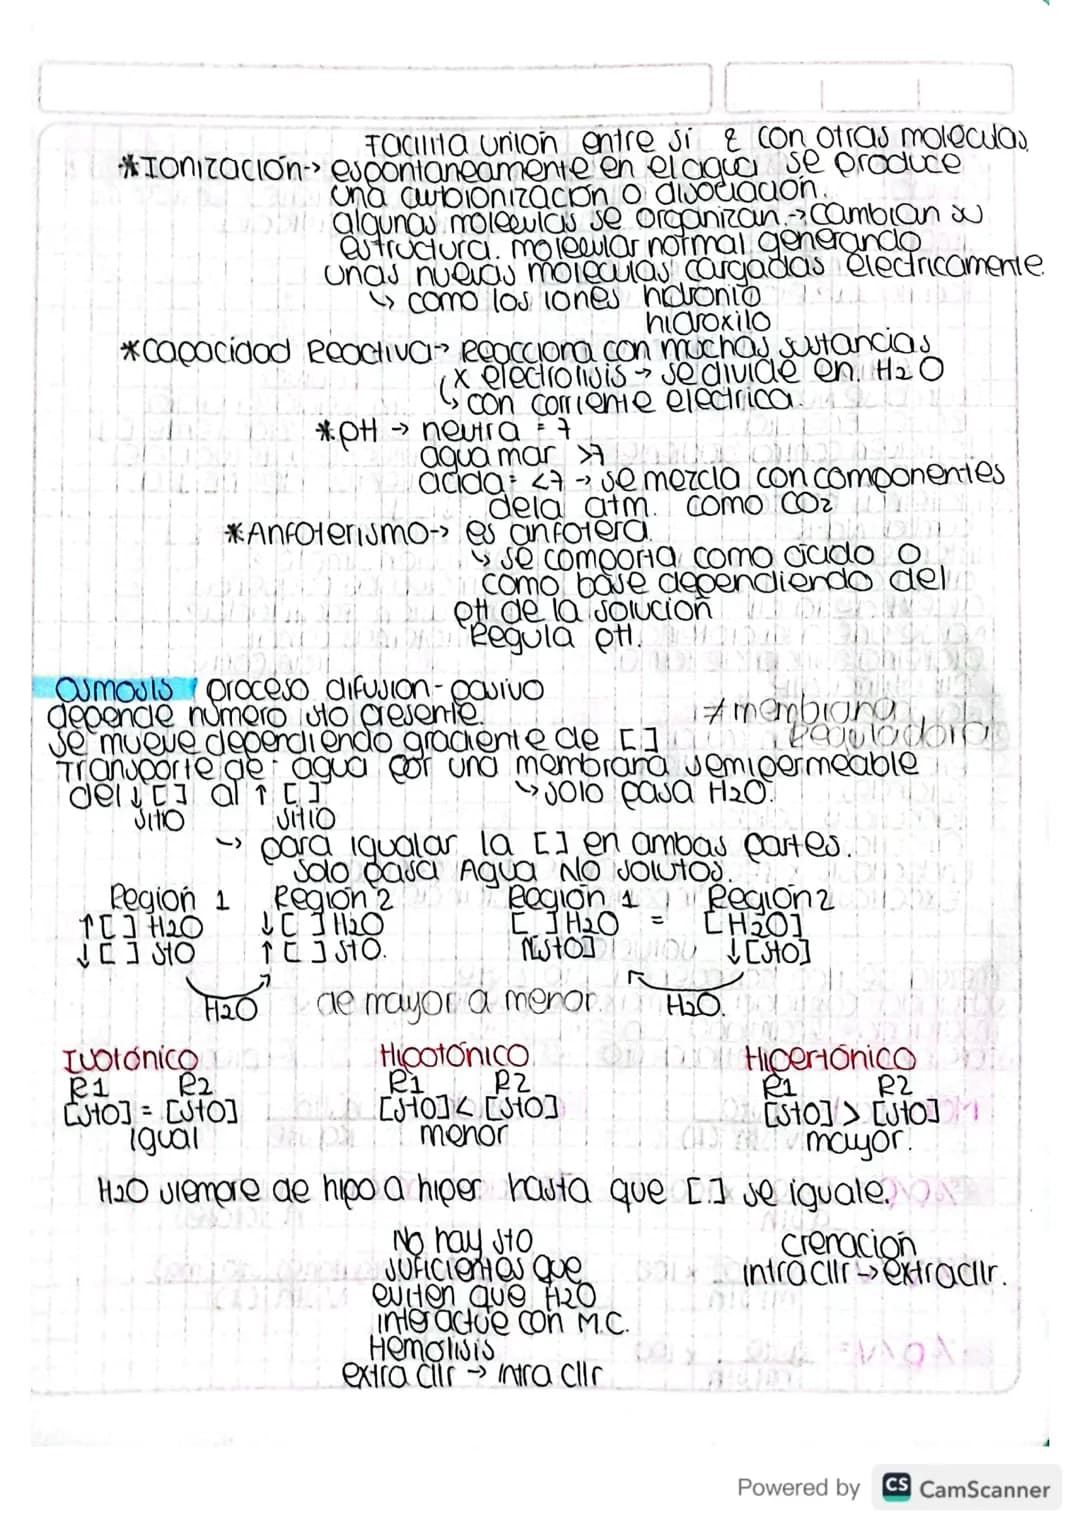 Facilita unión entre si & con otras moleculas
*Ionización-> espontaneamente en el agua se produce
una autoionización o disociación.
algunas moleculas se organizan -> cambian su
estructura molecular normal generando
unas nuevas moleculas cargadas electricamente.
↳ como los iones hidronio
hidroxilo
*Capacidad Reactiva-> Reacciona con muchas sustancias
x electrolisis -> se divide en H2O
↳ con corriente electrica.
*pH -> neutra = 7
agua mar >7
acida: <7 -> se mezcla con componentes
de la atm. como CO2
*Anfoterismo-> es anfotera.
↳ se comporta como ácido o
como base dependiendo del
pH de la solución
Regula pH.
Osmosis proceso difusion-pasivo
depende número sto presente.
≠ membrana
Reguladora
se mueve dependiendo gradiente de [.]
Transporte de agua por una membrana semipermeable
del ↓ [] al ↑ [] ↳ solo pasa H2O.
sitio sitio
↳ para igualar la [] en ambas partes.
solo pasa Agua NO solutos.
Región 1 Región 2 Región 1 Región 2
↑[] H2O ↓[] H2O [] H2O = [H2O]
↓[] sto ↑[] sto. [sto] ↓[sto]
H2O de mayor a menor. H2O.
Isotónico Hipotónico Hipertónico
R1 R2 R1 R2 R1 R2
[sto] = [sto] [sto] < [sto] [sto] > [sto]
igual menor mayor.
H2O siempre de hipo a hiper hasta que [.] se iguale.
No hay sto crenacion
suficientes que intracllr -> extracllr.
eviten que H2O
interactúe con M.C.
Hemolisis
extra cllr -> intra cllr
Powered by CS CamScanner